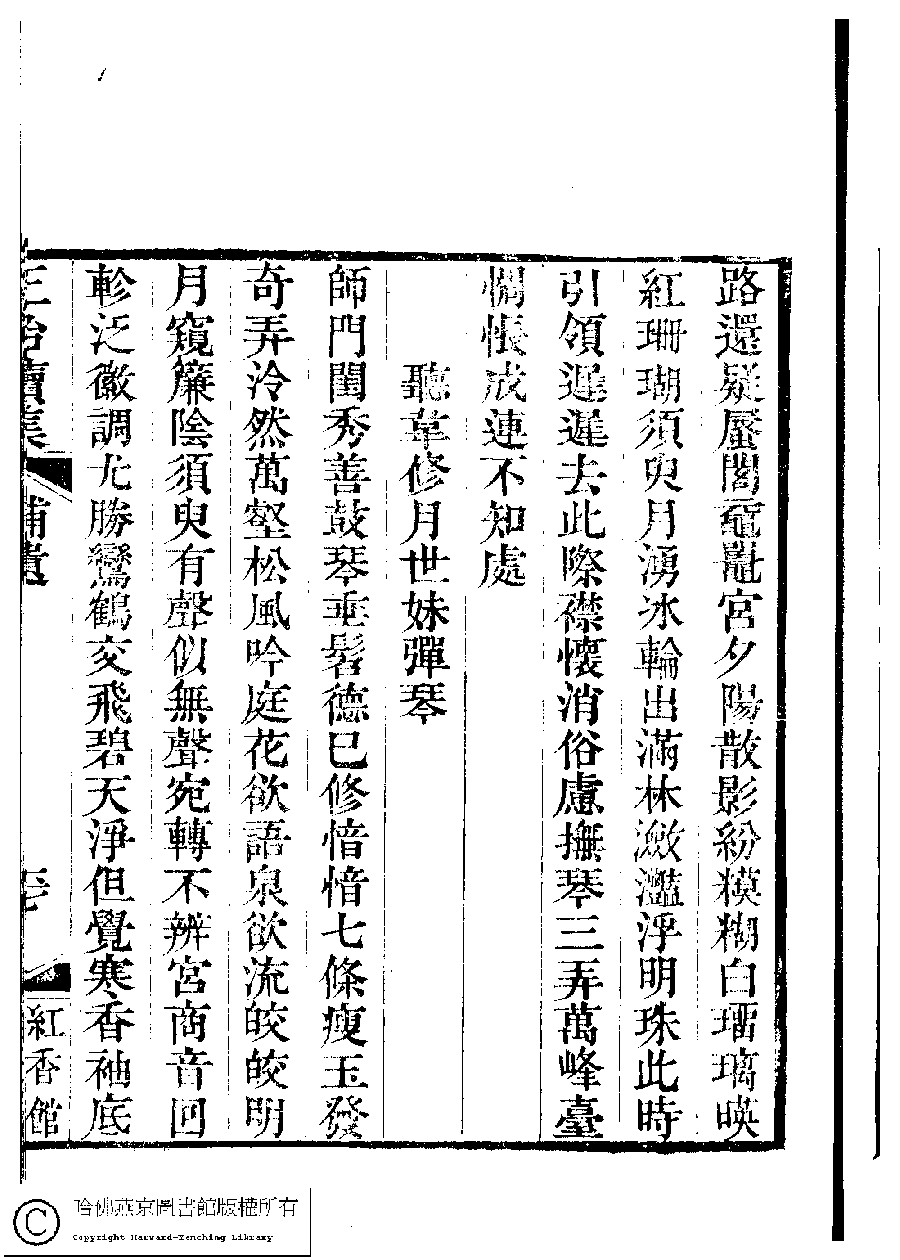 路還疑蜃閣黿鼉宮夕陽散影紛糢糊白瑠璃暎
紅珊瑚須臾月湧冰輪出滿林瀲灩浮明珠此時
引領遲遲去此際襟懷消俗慮撫琴三弄萬峰臺
惆悵成連不知處
聽韋修月世妹彈琴
師門閨秀善鼓琴垂髫德已修愔愔七條瘦玉發
奇弄泠然萬壑松風吟庭花欲語泉欲流皎皎明
月窺簾陰須臾有聲似無聲宛轉不辨宮商音回
軫泛徽調尤勝鸞鶴交飛碧天淨但覺寒香袖底
續集
補遺
紅香館
哈佛燕京圖書館版權所有
Copyright Harvard-Yenching Library